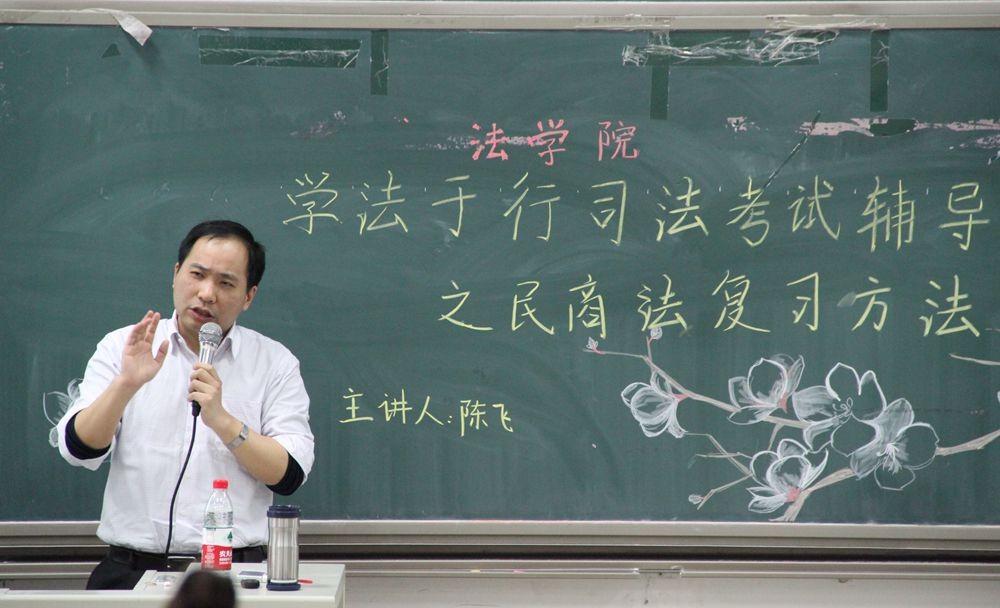 法学院
学法于行司法考试辅导
之民商法复习方法
主讲人:陈飞
农夫